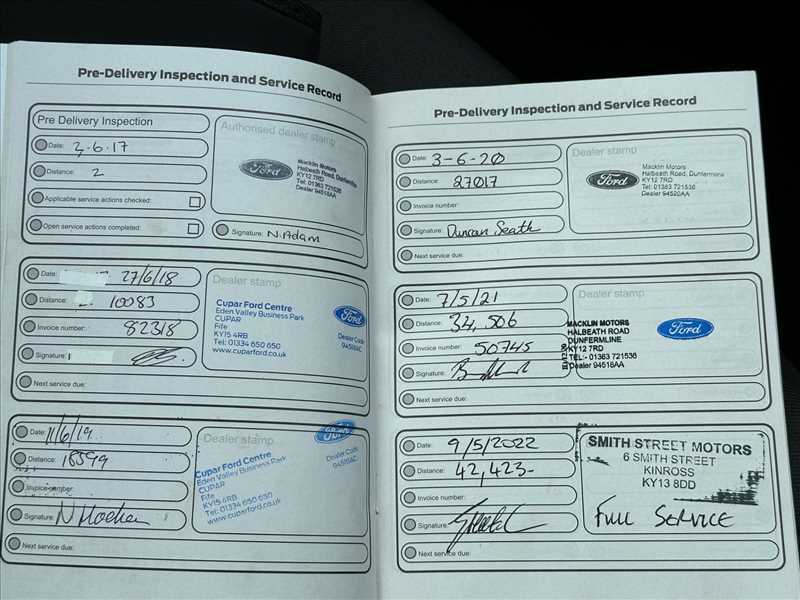 Pre-Delivery Inspection and Service Record
Pre Delivery Inspection
Date: 2.6.17
Distance: 2
Applicable service actions checked:
Open service actions completed:
Authorised dealer stamp
Ford
Macklin Motors
Halbeath Road, Dunfermline
KY12 7RD
Tel: 01383 721536
Dealer 94518AA
Signature: N.Adam
Date: 27/6/18
Distance: 10083
Invoice number: 82318
Signature:
Next service due:
Dealer stamp
Cupar Ford Centre
Eden Valley Business Park
CUPAR
Fife
KY15 4RB
Tel: 01334 650 650
www.cuparford.co.uk
Ford
Dealer Code
94518AC
Date: 11/6/19
Distance: 18599
Invoice number:
Signature:
Next service due:
Dealer stamp
Cupar Ford Centre
Eden Valley Business Park
CUPAR
Fife
KY15 4RB
Tel: 01334 650 650
www.cuparford.co.uk
Ford
Dealer Code
94518AC
Pre-Delivery Inspection and Service Record
Date: 3-6-20
Distance: 27017
Invoice number:
Signature: Duncan Seath
Next service due:
Dealer stamp
Ford
Macklin Motors
Halbeath Road, Dunfermline
KY12 7RD
Tel: 01383 721536
Dealer 94520AA
Date: 7/5/21
Distance: 34,506
Invoice number: 50745
Signature:
Next service due:
Dealer stamp
MACKLIN MOTORS
HALBEATH ROAD
DUNFERMLINE
KY12 7RD
TEL:- 01383 721536
Dealer 94518AA
Ford
Date: 9/5/2022
Distance: 42,423-
Invoice number:
Signature:
Next service due:
SMITH STREET MOTORS
6 SMITH STREET
KINROSS
KY13 8DD
FULL SERVICE